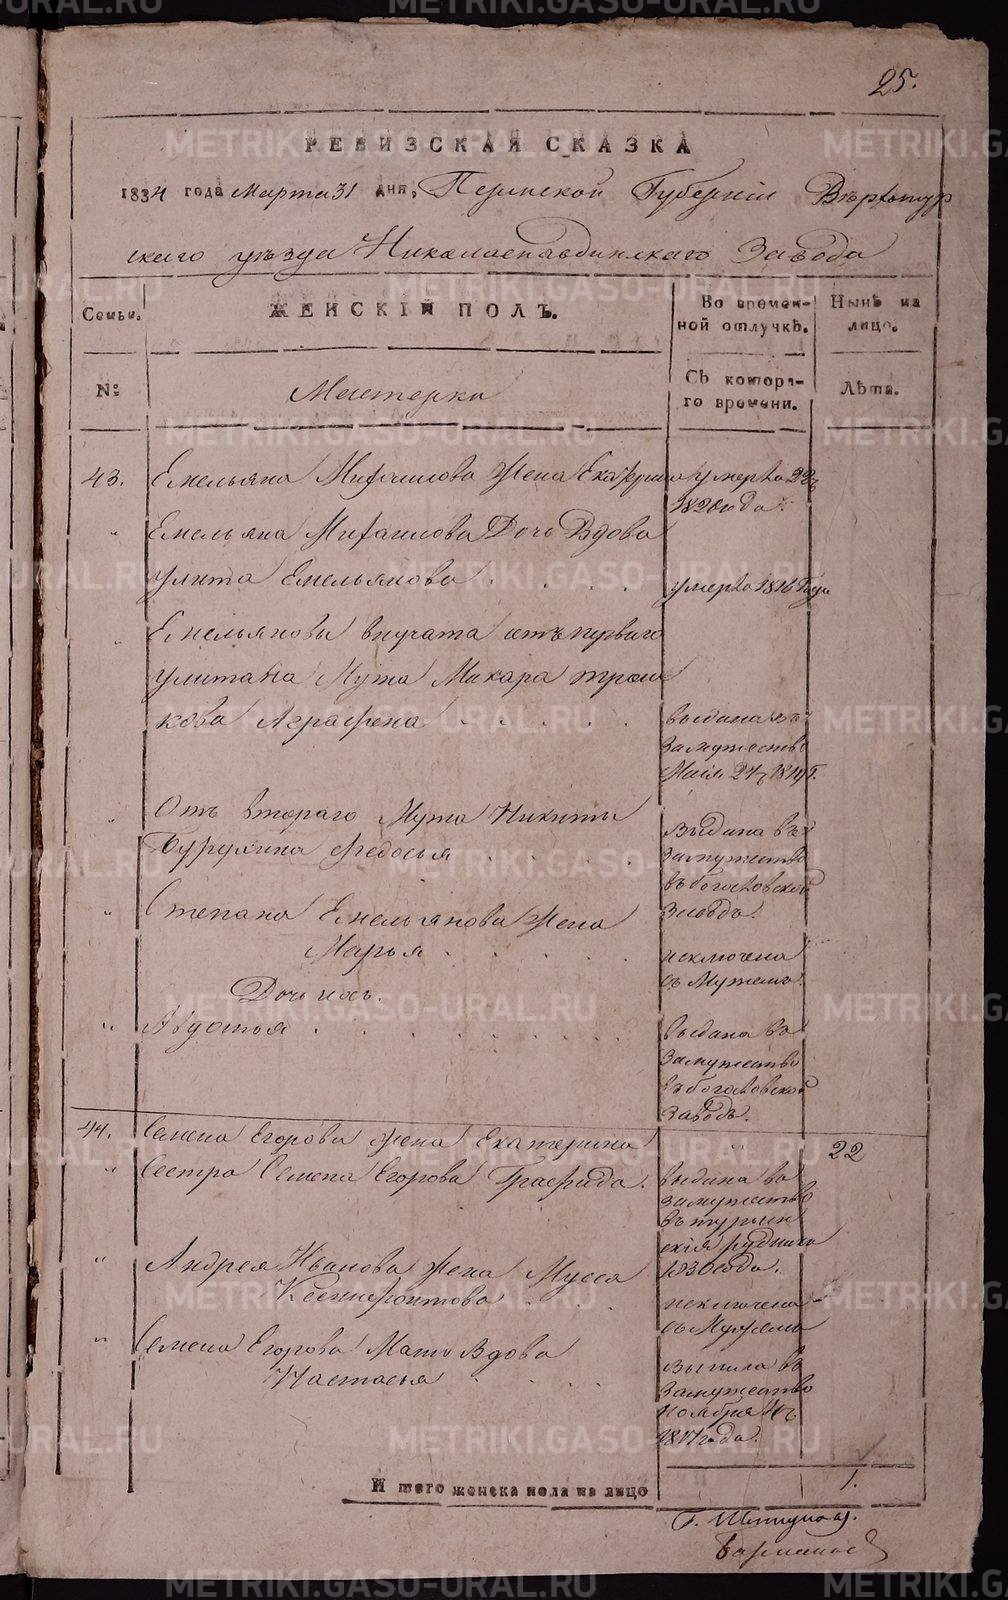 25.
РЕВИЗСКАЯ СКАЗКА
1834 года Марта 31 дня, Пермской Губерніи Верхотур
скаго уезда Николаепавдинскаго Завода
Семьи. ЖЕНСКІЙ ПОЛЪ. Во времен- Нынѣ на
ной отлучкѣ. лицо.
№ Мастерки Съ котора- Лѣта.
го времени.
43. Емельяна Михаилова жена Екатерина умерла
Емельяна Михаилова Дочь Вдова
Улита Емельянова . . . . умерла 1816 Года
Емельяновы внучата отъ перваго
Улитана Мужа Макара
кова Аграфена . . . . . выдана въ
замужество
Маія 24ъ 1819 г.
Отъ втораго Мужа Никиты
Бурухина Федосья . . . . выдана въ
замужество
въ богословской
заводъ.
Степана Емельянова жена
Марья . . . . . исключена
съ Мужемъ.
Дочь ихъ.
Авдотья . . . . . . . . выдана въ
замужество
въ богословской
заводъ.
44. Семена Егорова жена Екатерина 22
Сестра Семена Егорова Графида. выдана въ
замужество
въ турьин
скія рудники
1830 года.
Андрея Иванова жена
Ксенифонтова . . . исключена
съ Мужемъ
Семена Егорова Мать Вдова
Настасья . . . . вышла въ
замужество
ноября
1817 года.
И того женска пола на лицо 1.
METRIKI.GASO-URAL.RU